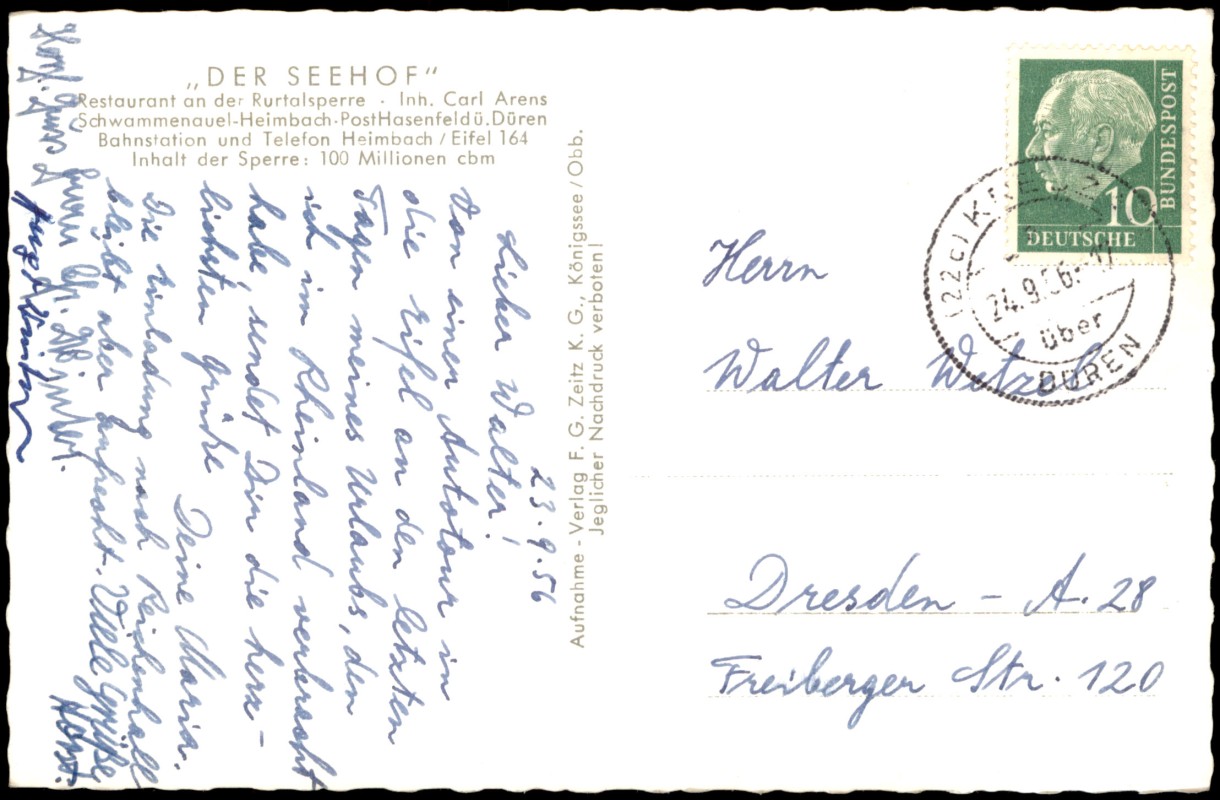 „DER SEEHOF“
Restaurant an der Rurtalsperre · Inh. Carl Arens
Schwammenauel-Heimbach-Post Hasenfeld ü. Düren
Bahnstation und Telefon Heimbach / Eifel 164
Inhalt der Sperre: 100 Millionen cbm
23.9.56
Lieber Walter!
Von einer Autotour in
die Eifel an den letzten
Tagen meines Urlaubs, den
ich im Rheinland verbracht
habe, sendet Dir die herz-
lichsten Grüße
Deine Maria.
Die Einladung nach Reichenhall
bleibt aber aufrecht. Viele Grüße
Horst.
Herzl. Grüße
Aufnahme - Verlag F. G. Zeitz K. G., Königssee / Obb.
Jeglicher Nachdruck verboten!
BUNDESPOST
10
DEUTSCHE
(22c) 
24.9.56.-17
über
DÜREN
Herrn
Walter
Dresden - A. 28
Freiberger Str. 120